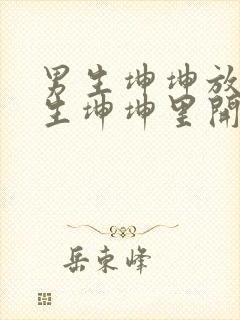 男生坤坤放
生坤坤里開
岳東峰